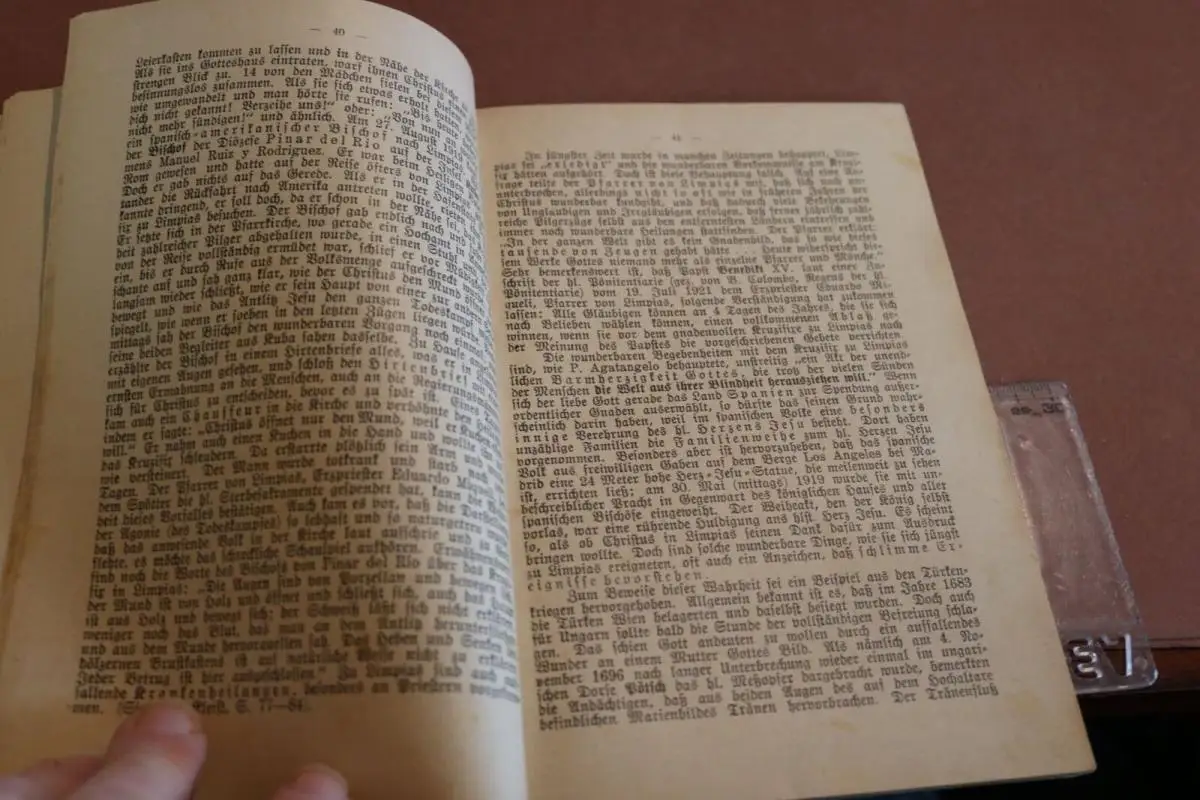 — 40 —
Leierkasten kommen zu lassen und in der Nähe der Kirche
Als sie ins Gotteshaus eintraten, warf ihnen Christus einen
strengen Blick zu. 14 von den Mädchen fielen bei diesem
besinnungslos zusammen. Als sie sich etwas erholt hatten,
wie umgewandelt und man hörte sie rufen: „Bis heute
dich nicht gekannt! Verzeihe uns!" oder: „Von nun an
nicht mehr sündigen!" und ähnlich. Am 27. August 1919
ein spanisch-amerikanischer Bischof nach Limpias,
der Bischof der Diözese Pinar del Rio auf der Insel
mens Manuel Ruiz y Rodriguez. Er war beim Heiligen
Rom gewesen und hatte auf der Reise öfters von Limpias
Doch er gab nichts auf das Gerede. Als er in der Hafenstadt
tander die Rückfahrt nach Amerika antreten wollte, rieten
kannte dringend, er soll doch, da er schon in der Nähe sei, das
fix zu Limpias besuchen. Der Bischof gab endlich nach und
Er setzte sich in der Pfarrkirche, wo gerade ein Hochamt in
heit zahlreicher Pilger abgehalten wurde, in einen Stuhl und
von der Reise vollständig ermüdet war, schlief er vor Müdigkeit
ein, bis er durch Rufe aus der Volksmenge aufgeschreckt
schaute auf und sah ganz klar, wie der Christus den Mund öffnet
langsam wieder schließt, wie er sein Haupt von einer zur anderen
bewegt und wie das Antlitz Jesu den ganzen Todeskampf
spiegelt, wie wenn er soeben in den letzten Zügen liegen würde.
mittags sah der Bischof den wunderbaren Vorgang noch einmal
seine beiden Begleiter aus Kuba sahen dasselbe. Zu Hause
erzählte der Bischof in einem Hirtenbriefe alles, was er in
mit eigenen Augen gesehen, und schloß den Hirtenbrief mit
ernsten Ermahnung an die Menschen, auch an die Regierungsmänner
sich für Christus zu entscheiden, bevor es zu spät ist. Eines
kam auch ein Chauffeur in die Kirche und verhöhnte den
indem er sagte: „Christus öffnet nur den Mund, weil er Kuchen
will." Er nahm auch einen Kuchen in die Hand und wollte ihn
das Kruzifix schleudern. Da erstarrte plötzlich sein Arm und
wie versteinert. Der Mann wurde totkrank und starb nach
Tagen. Der Pfarrer von Limpias, Erzpriester Eduardo Miqueli,
dem Spötter die hl. Sterbesakramente gespendet hat, kann die
heit dieses Vorfalles bestätigen. Auch kam es vor, daß die Darstellung
der Agonie (des Todeskampfes) so lebhaft und so naturgetreu
daß das anwesende Volk in der Kirche laut aufschrie und in
flehte, es möchte das schreckliche Schauspiel aufhören. Erwähnenswert
sind noch die Worte des Bischofs von Pinar del Rio über das
fix in Limpias: „Die Augen sind von Porzellan und bewegen sich,
der Mund ist von Holz und öffnet und schließt sich, auch das Haupt
ist aus Holz und bewegt sich; der Schweiß läßt sich nicht erklären,
weniger noch das Blut, das man an dem Antlitz herunterfließen
und aus dem Munde hervorquellen sah. Das Heben und Senken des
hölzernen Brustkastens ist auf natürliche Weise nicht zu erklären.
Jeder Betrug ist hier ausgeschlossen." Zu Limpias sind auch
fallende Krankenheilungen, besonders an Priestern vorgekommen
men. S. 77—84).
— 41 —
Im jüngster Zeit wurde in manchen Zeitungen behauptet, Lim-
pias sei „erledigt" und die wunderbaren Vorkommnisse am Kruzi-
fix hätten aufgehört. Doch ist diese Behauptung falsch. Auf eine An-
frage teilte der Pfarrer von Limpias mit, daß sich noch un-
unterbrochen, allerdings nicht so oft wie in früheren Jahren der
Christus wunderbar kundgibt, und daß dadurch viele Bekehrungen
von Ungläubigen und Irrgläubigen erfolgen, daß ferner zahlreich zahl-
reiche Pilgerzüge selbst aus den entferntesten Ländern eintreffen und
immer noch wunderbare Heilungen stattfinden. Der Pfarrer erklärt:
„In der ganzen Welt gibt es kein Gnadenbild, das so wie dieses
tausende von Zeugen gehabt hätte . . . Heute widerspricht die-
sem Werke Gottes niemand mehr als einzelne Pfarrer und Mönche."
Sehr bemerkenswert ist, daß Papst Benedikt XV. laut einer Zu-
schrift der hl. Pönitentiarie (gez. von B. Colombo, Regens der hl.
Pönitentiarie) vom 19. Juli 1921 dem Erzpriester Eduardo Mi-
queli, Pfarrer von Limpias, folgende Verständigung hat zukommen
lassen: Alle Gläubigen können an 4 Tagen des Jahres, die sie sich
nach Belieben wählen können, einen vollkommenen Ablaß ge-
winnen, wenn sie vor dem gnadenvollen Kruzifixe zu Limpias nach
der Meinung des Papstes die vorgeschriebenen Gebete verrichten.
Die wunderbaren Begebenheiten mit dem Kruzifix zu Limpias
sind, wie P. Agatangelo behauptete, unstreitig „ein Akt der unend-
lichen Barmherzigkeit Gottes, die trotz der vielen Sünden
der Menschen die Welt aus ihrer Blindheit herausziehen will." Wenn
sich der liebe Gott gerade das Land Spanien zur Spendung außer-
ordentlicher Gnaden auserwählt, so dürfte das seinen Grund wahr-
scheinlich darin haben, weil im spanischen Volke eine besonders
innige Verehrung des hl. Herzens Jesu besteht. Dort haben
unzählige Familien die Familienweihe zum hl. Herzen Jesu
vorgenommen. Besonders aber ist hervorzuheben, daß das spanische
Volk aus freiwilligen Gaben auf dem Berge Los Angeles bei Ma-
drid eine 24 Meter hohe Herz-Jesu-Statue, die meilenweit zu sehen
ist, errichten ließ; am 30. Mai (mittags) 1919 wurde sie mit un-
beschreiblicher Pracht in Gegenwart des königlichen Hauses und aller
spanischen Bischöfe eingeweiht. Der Weiheakt, den der König selbst
vorlas, war eine rührende Huldigung ans hlst. Herz Jesu. Es scheint
so, als ob Christus in Limpias seinen Dank dafür zum Ausdruck
bringen wollte. Doch sind solche wunderbare Dinge, wie sie sich jüngst
zu Limpias ereigneten, oft auch ein Anzeichen, daß schlimme Er-
eignisse bevorstehen.
Zum Beweise dieser Wahrheit sei ein Beispiel aus den Türken-
kriegen hervorgehoben. Allgemein bekannt ist es, daß im Jahre 1683
die Türken Wien belagerten und daselbst besiegt wurden. Doch auch
für Ungarn sollte bald die Stunde der vollständigen Befreiung schla-
gen. Das schien Gott andeuten zu wollen durch ein auffallendes
Wunder an einem Mutter Gottes Bild. Als nämlich am 4. No-
vember 1696 nach langer Unterbrechung wieder einmal im ungari-
schen Dorfe Pötsch das hl. Meßopfer dargebracht wurde, bemerkten
die Andächtigen, daß aus beiden Augen des auf dem Hochaltare
befindlichen Marienbildes Tränen hervorbrachen. Der Tränenfluß